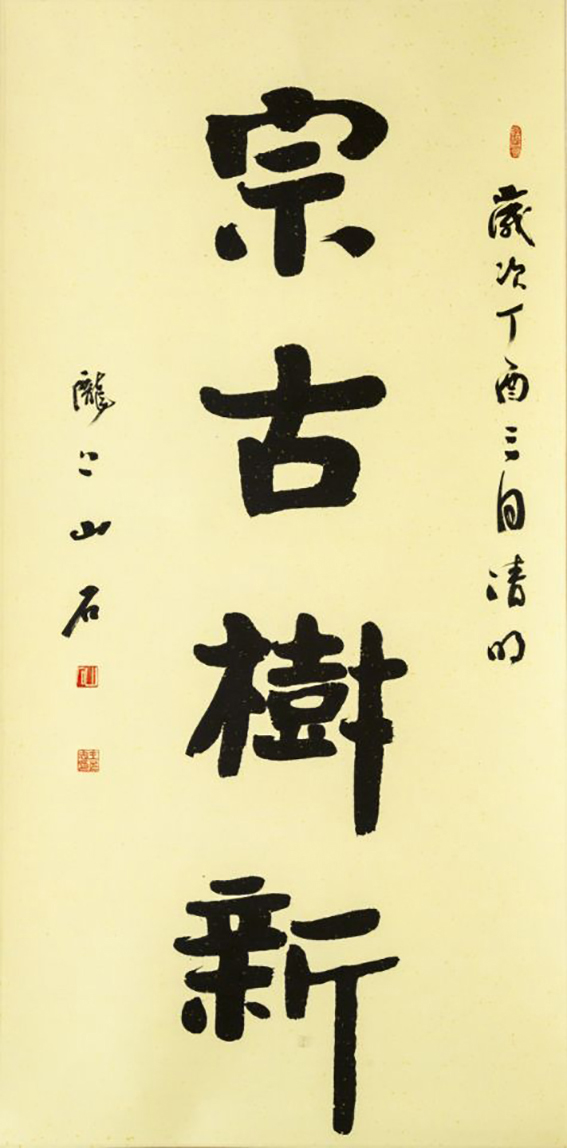 歲次丁酉三月清明
宗古樹新
隴上山石